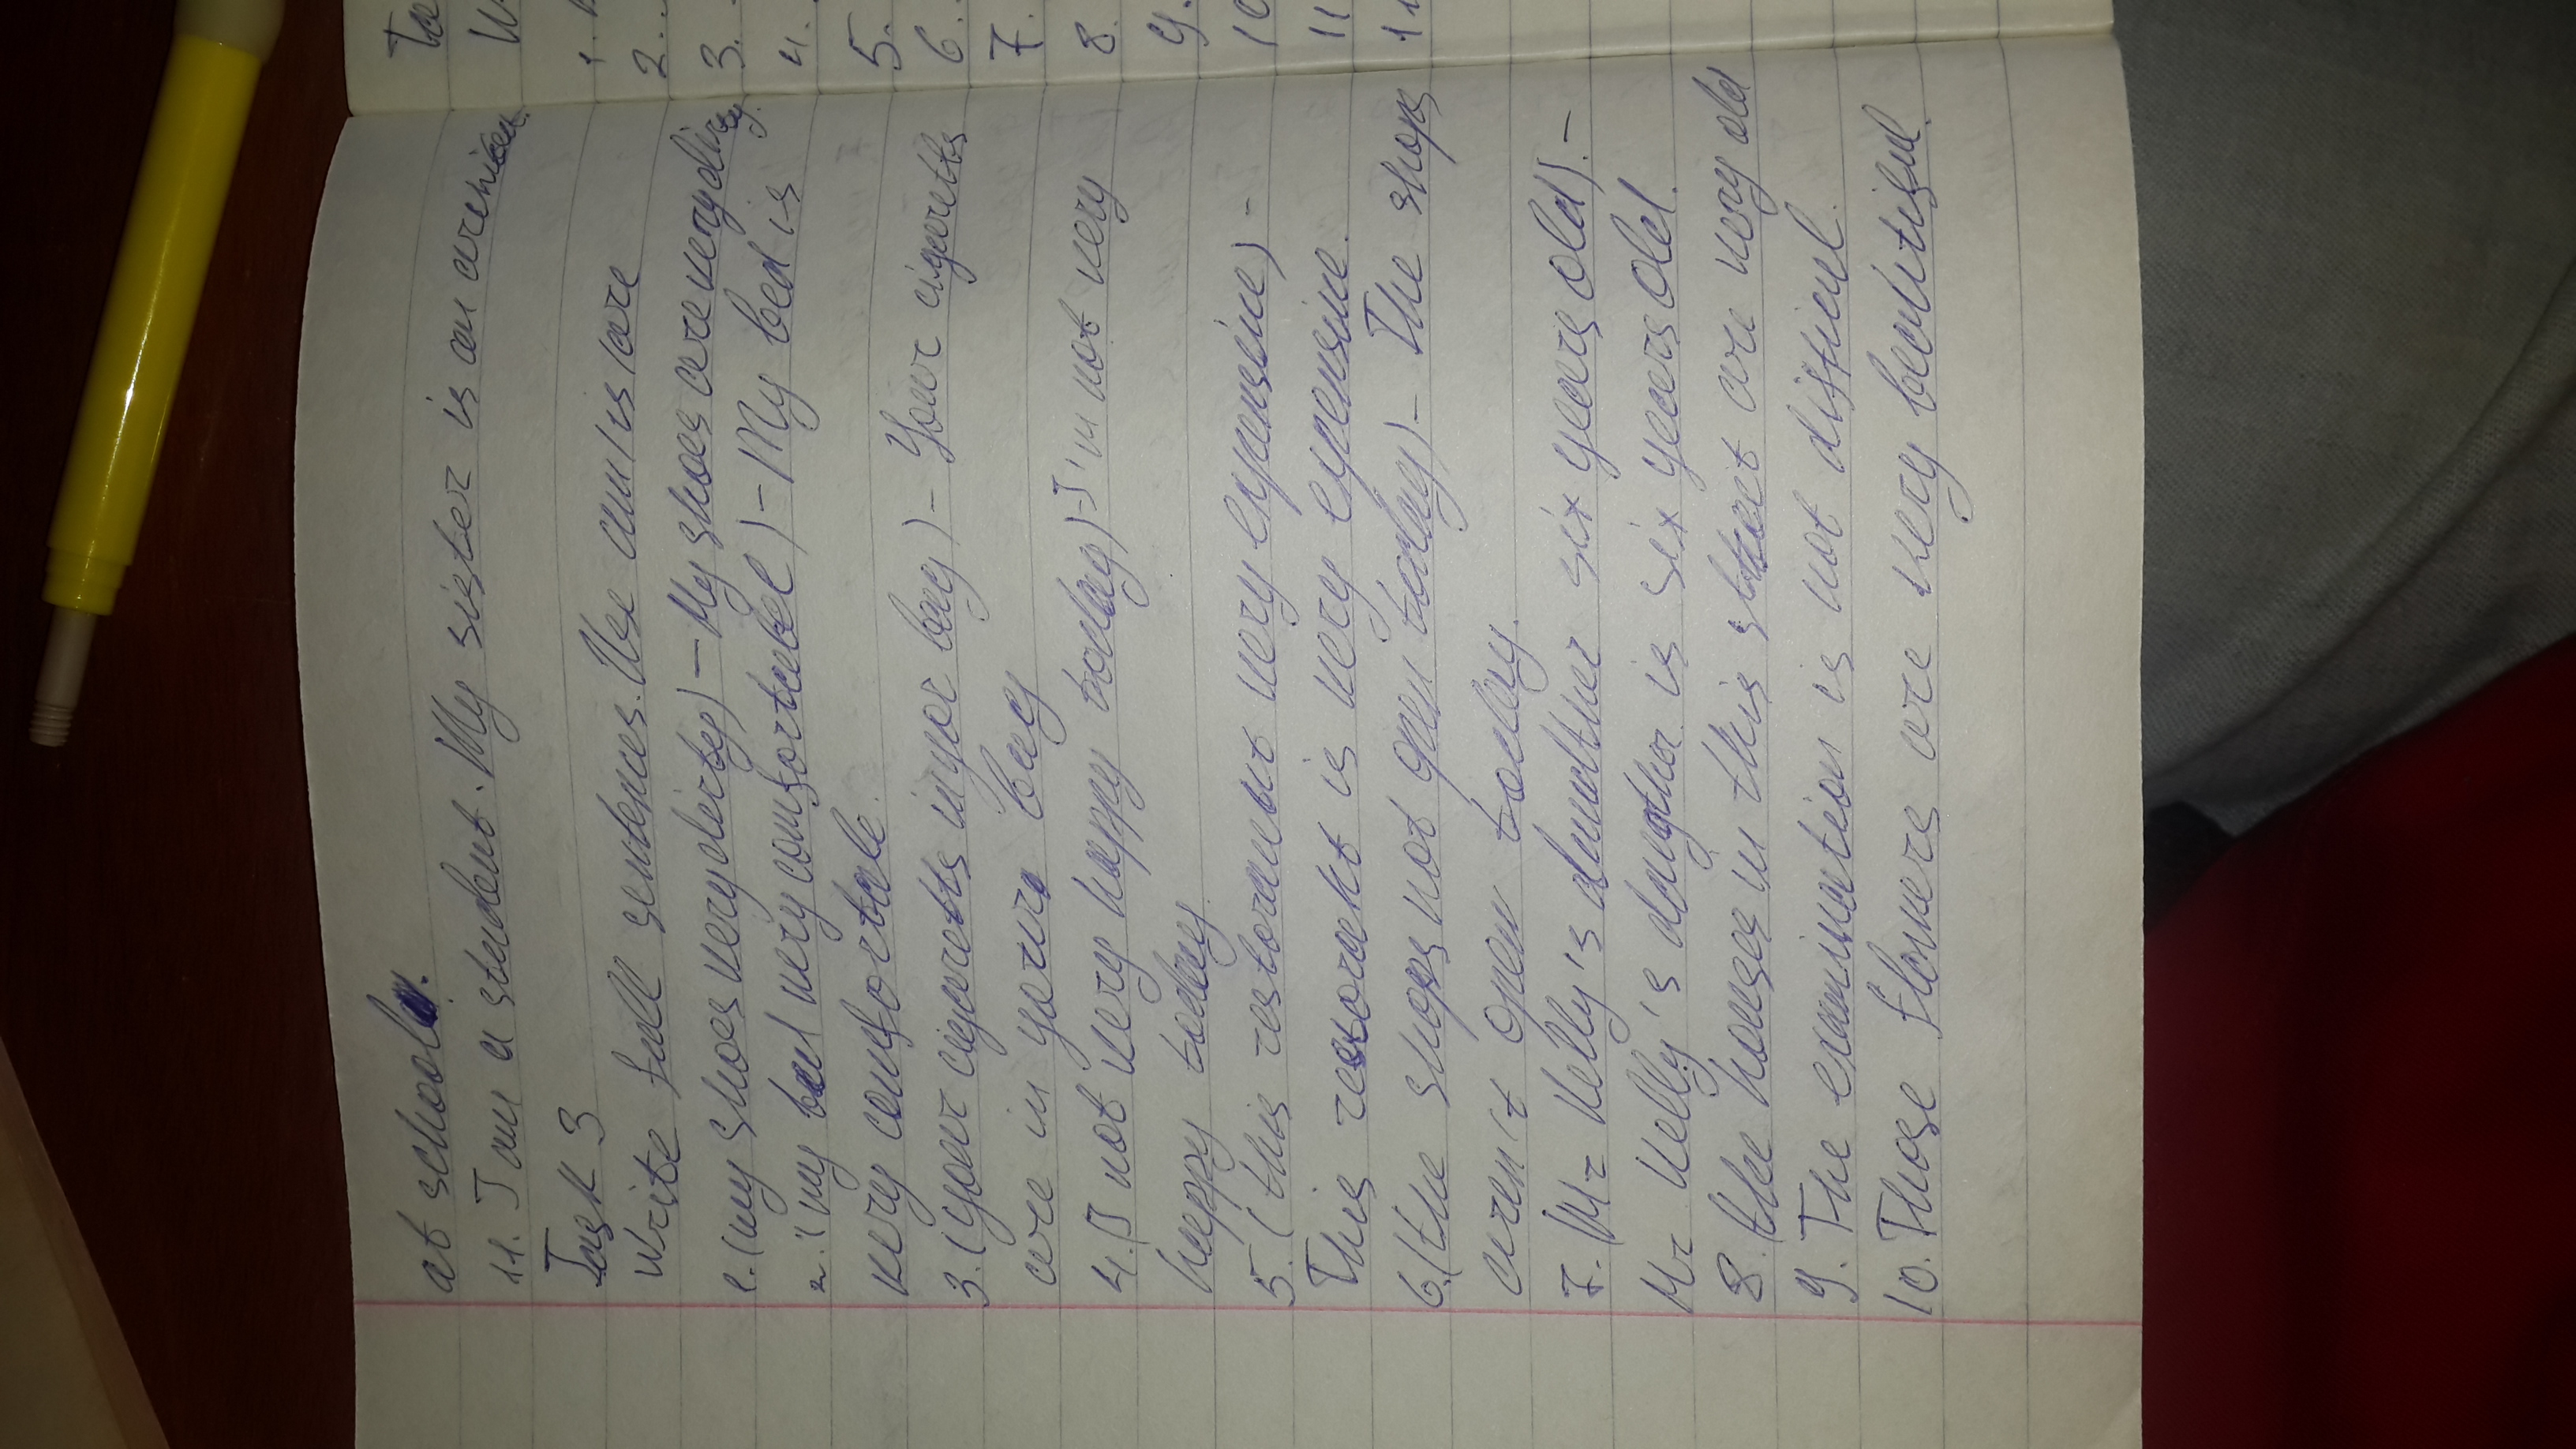 at school.
11. I am a student. My sister is an
Task 3
Write full sentences. Use am/is/are
1. (my shoes very dirty) – My shoes are very dirty
2. (my bed very comfortabel) – My bed is
very comfortale.
3. (your cigaretts in yor bag) – Your cigaretts
are in your bag
4. (I not very happy today) – I'm not very
happy today.
5. (this restorant very expensive) –
This restorant is very expensive.
6. (the shops not open today) – The shops
aren't open today.
7. (Mr Kelly's six years old). –
Mr Kelly's daugther is six years old.
8. the houses in this street are very old
9. The examination is not difficul.
10. Those flowers are very beautiful.
Ta
W
1.
2...
3.
4.
5.
6.
7.
8.
9.
10
11